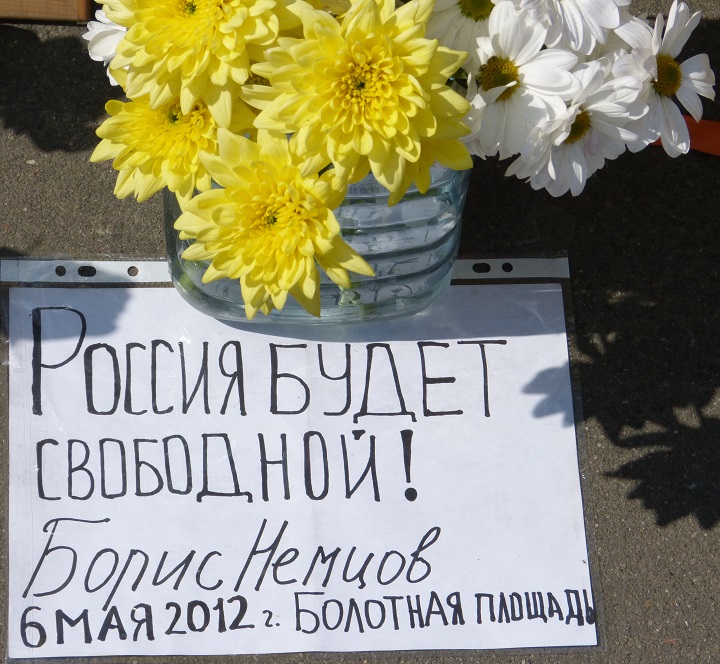 Россия будет
свободной!
Борис Немцов
6 мая 2012 г. Болотная площадь